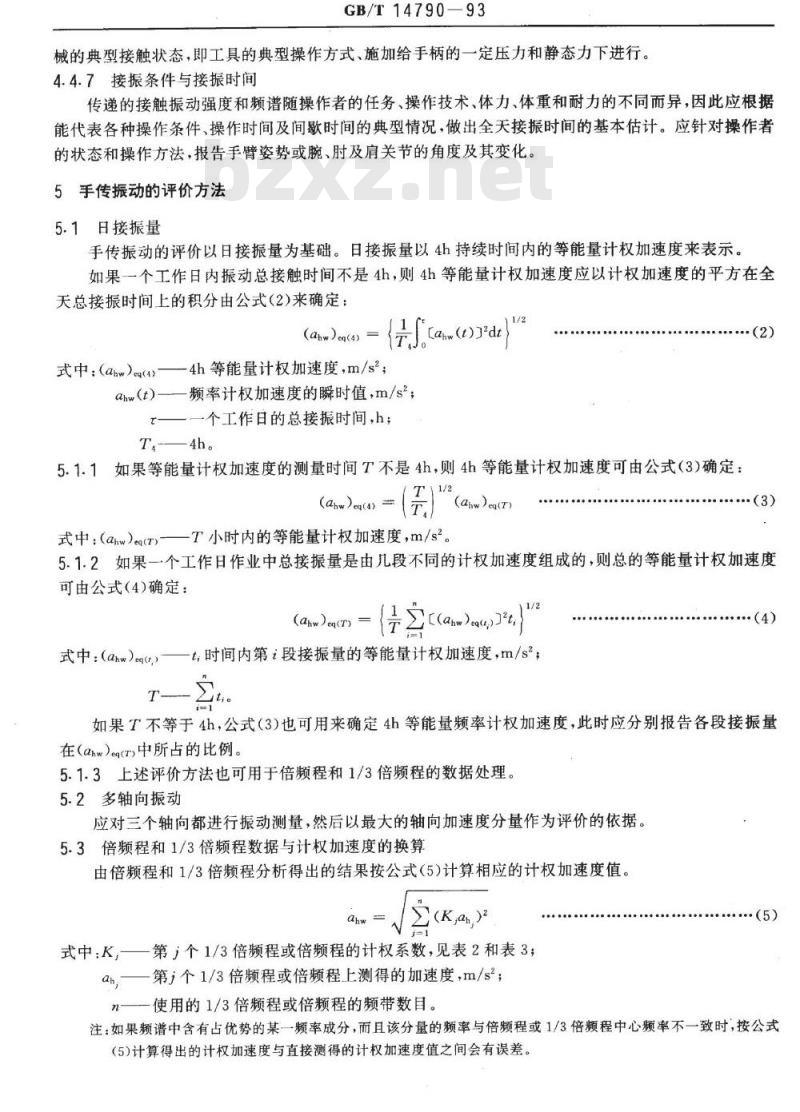 GB/T 14790—93
械的典型接触状态,即工具的典型操作方式、施加给手柄的一定压力和静态力下进行。
4.4.7 接振条件与接振时间
传递的接触振动强度和频谱随操作者的任务、操作技术、体力、体重和耐力的不同而异,因此应根据
能代表各种操作条件、操作时间及间歇时间的典型情况,做出全天接振时间的基本估计。应针对操作者
的状态和操作方法,报告手臂姿势或腕、肘及肩关节的角度及其变化。
bzxz.net
5 手传振动的评价方法
5.1 日接振量
手传振动的评价以日接振量为基础。日接振量以 4h 持续时间内的等能量计权加速度来表示。
如果一个工作日内振动总接触时间不是 4h,则 4h 等能量计权加速度应以计权加速度的平方在全
天总接振时间上的积分由公式(2)来确定:
(a_hw)_eq(4) = {1/T₄ ∫₀^τ [a_hw(t)]²dt}^1/2 ……………………………(2)
式中:(a_hw)_eq(4)——4h 等能量计权加速度,m/s²;
a_hw(t)——频率计权加速度的瞬时值,m/s²;
τ——一个工作日的总接振时间,h;
T₄——4h。
5.1.1 如果等能量计权加速度的测量时间 T 不是 4h,则 4h 等能量计权加速度可由公式(3)确定:
(a_hw)_eq(4) = (T/T₄)^1/2 (a_hw)_eq(T) ……………………………(3)
式中:(a_hw)_eq(T)——T 小时内的等能量计权加速度,m/s²。
5.1.2 如果一个工作日作业中总接振量是由几段不同的计权加速度组成的,则总的等能量计权加速度
可由公式(4)确定:
(a_hw)_eq(T) = {1/T ∑_{i=1}^n [(a_hw)_eq(t_i)]²t_i}^1/2 ……………………………(4)
式中:(a_hw)_eq(t_i)——t_i 时间内第 i 段接振量的等能量计权加速度,m/s²;
T——∑_{i=1}^n t_i。
如果 T 不等于 4h,公式(3)也可用来确定 4h 等能量频率计权加速度,此时应分别报告各段接振量
在(a_hw)_eq(T)中所占的比例。
5.1.3 上述评价方法也可用于倍频程和 1/3 倍频程的数据处理。
5.2 多轴向振动
应对三个轴向都进行振动测量,然后以最大的轴向加速度分量作为评价的依据。
5.3 倍频程和 1/3 倍频程数据与计权加速度的换算
由倍频程和 1/3 倍频程分析得出的结果按公式(5)计算相应的计权加速度值。
a_hw = √(∑_{j=1}^n (K_j a_h_j)²) ……………………………(5)
式中:K_j——第 j 个 1/3 倍频程或倍频程的计权系数,见表 2 和表 3;
a_h_j——第 j 个 1/3 倍频程或倍频程上测得的加速度,m/s²;
n——使用的 1/3 倍频程或倍频程的频带数目。
注:如果频谱中含有占优势的某一频率成分,而且该分量的频率与倍频程或 1/3 倍频程中心频率不一致时,按公式
(5)计算得出的计权加速度与直接测得的计权加速度值之间会有误差。